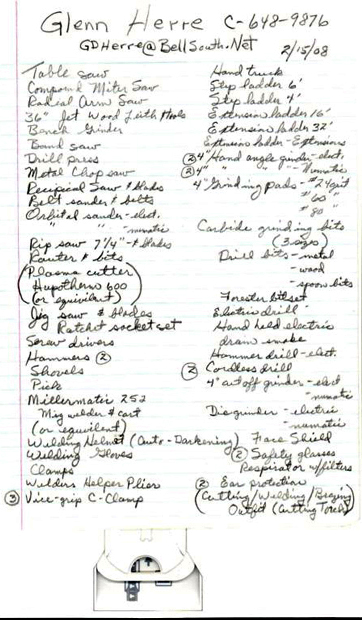 Glenn Herre C-648-9876
GDHerre@BellSouth.Net 2/15/08
Table saw
Compound Miter Saw
Radial Arm Saw
36" Jet Wood Leith
Bench Grinder
Band saw
Drill press
Metal Chop saw
Recipical Saw & blades
Belt sander & belts
Orbital sander - elect.
" " - numatic
Rip saw 7 1/4" - & blades
Router & bits
(Plasma cutter
Hypotherm 600
(or equivilent)
Jig saw & blades
Ratchet socket set
Screw drivers
Hammers (2)
Shovels
Picks
Millermatic 252
Mig welder & cart
(or equivilent)
Welding Helmet (Auto-Darkening)
Welding Gloves
Clamps
Welders Helper Plier
(3) Vice-grip C-Clamp
Hand truck
Step ladder 6'
Step ladder 4'
Extension ladder 16'
Extension ladder 32'
Extension ladder - Extensions
(2) 4" Hand angle grinder - elect.
(2) 4" " " numatic
4" Grinding Pads - #24 grit
#60 "
#80 "
Carbide grinding bits
(3 sizes)
Drill bits - metal
- wood
- spoon bits
Forester bit set
Electric drill
Hand held electric
drain snake
Hammer drill - elect.
(2) Cordless drill
4" cutoff grinder - elect
- numatic
Die grinder - electric
- numatic
Face Shield
(2) Safety glasses
Respirator w/filters
(2) Ear protection
(Cutting/Welding/Brazing
Outfit (Cutting Torch)